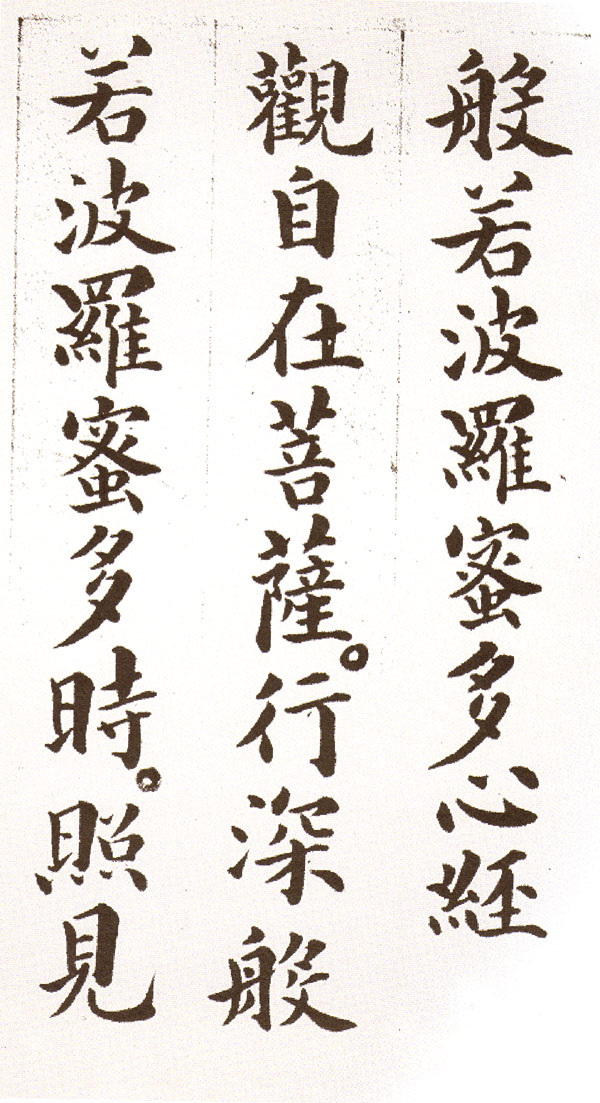 般若波羅蜜多心經
觀自在菩薩。行深般
若波羅蜜多時。照見